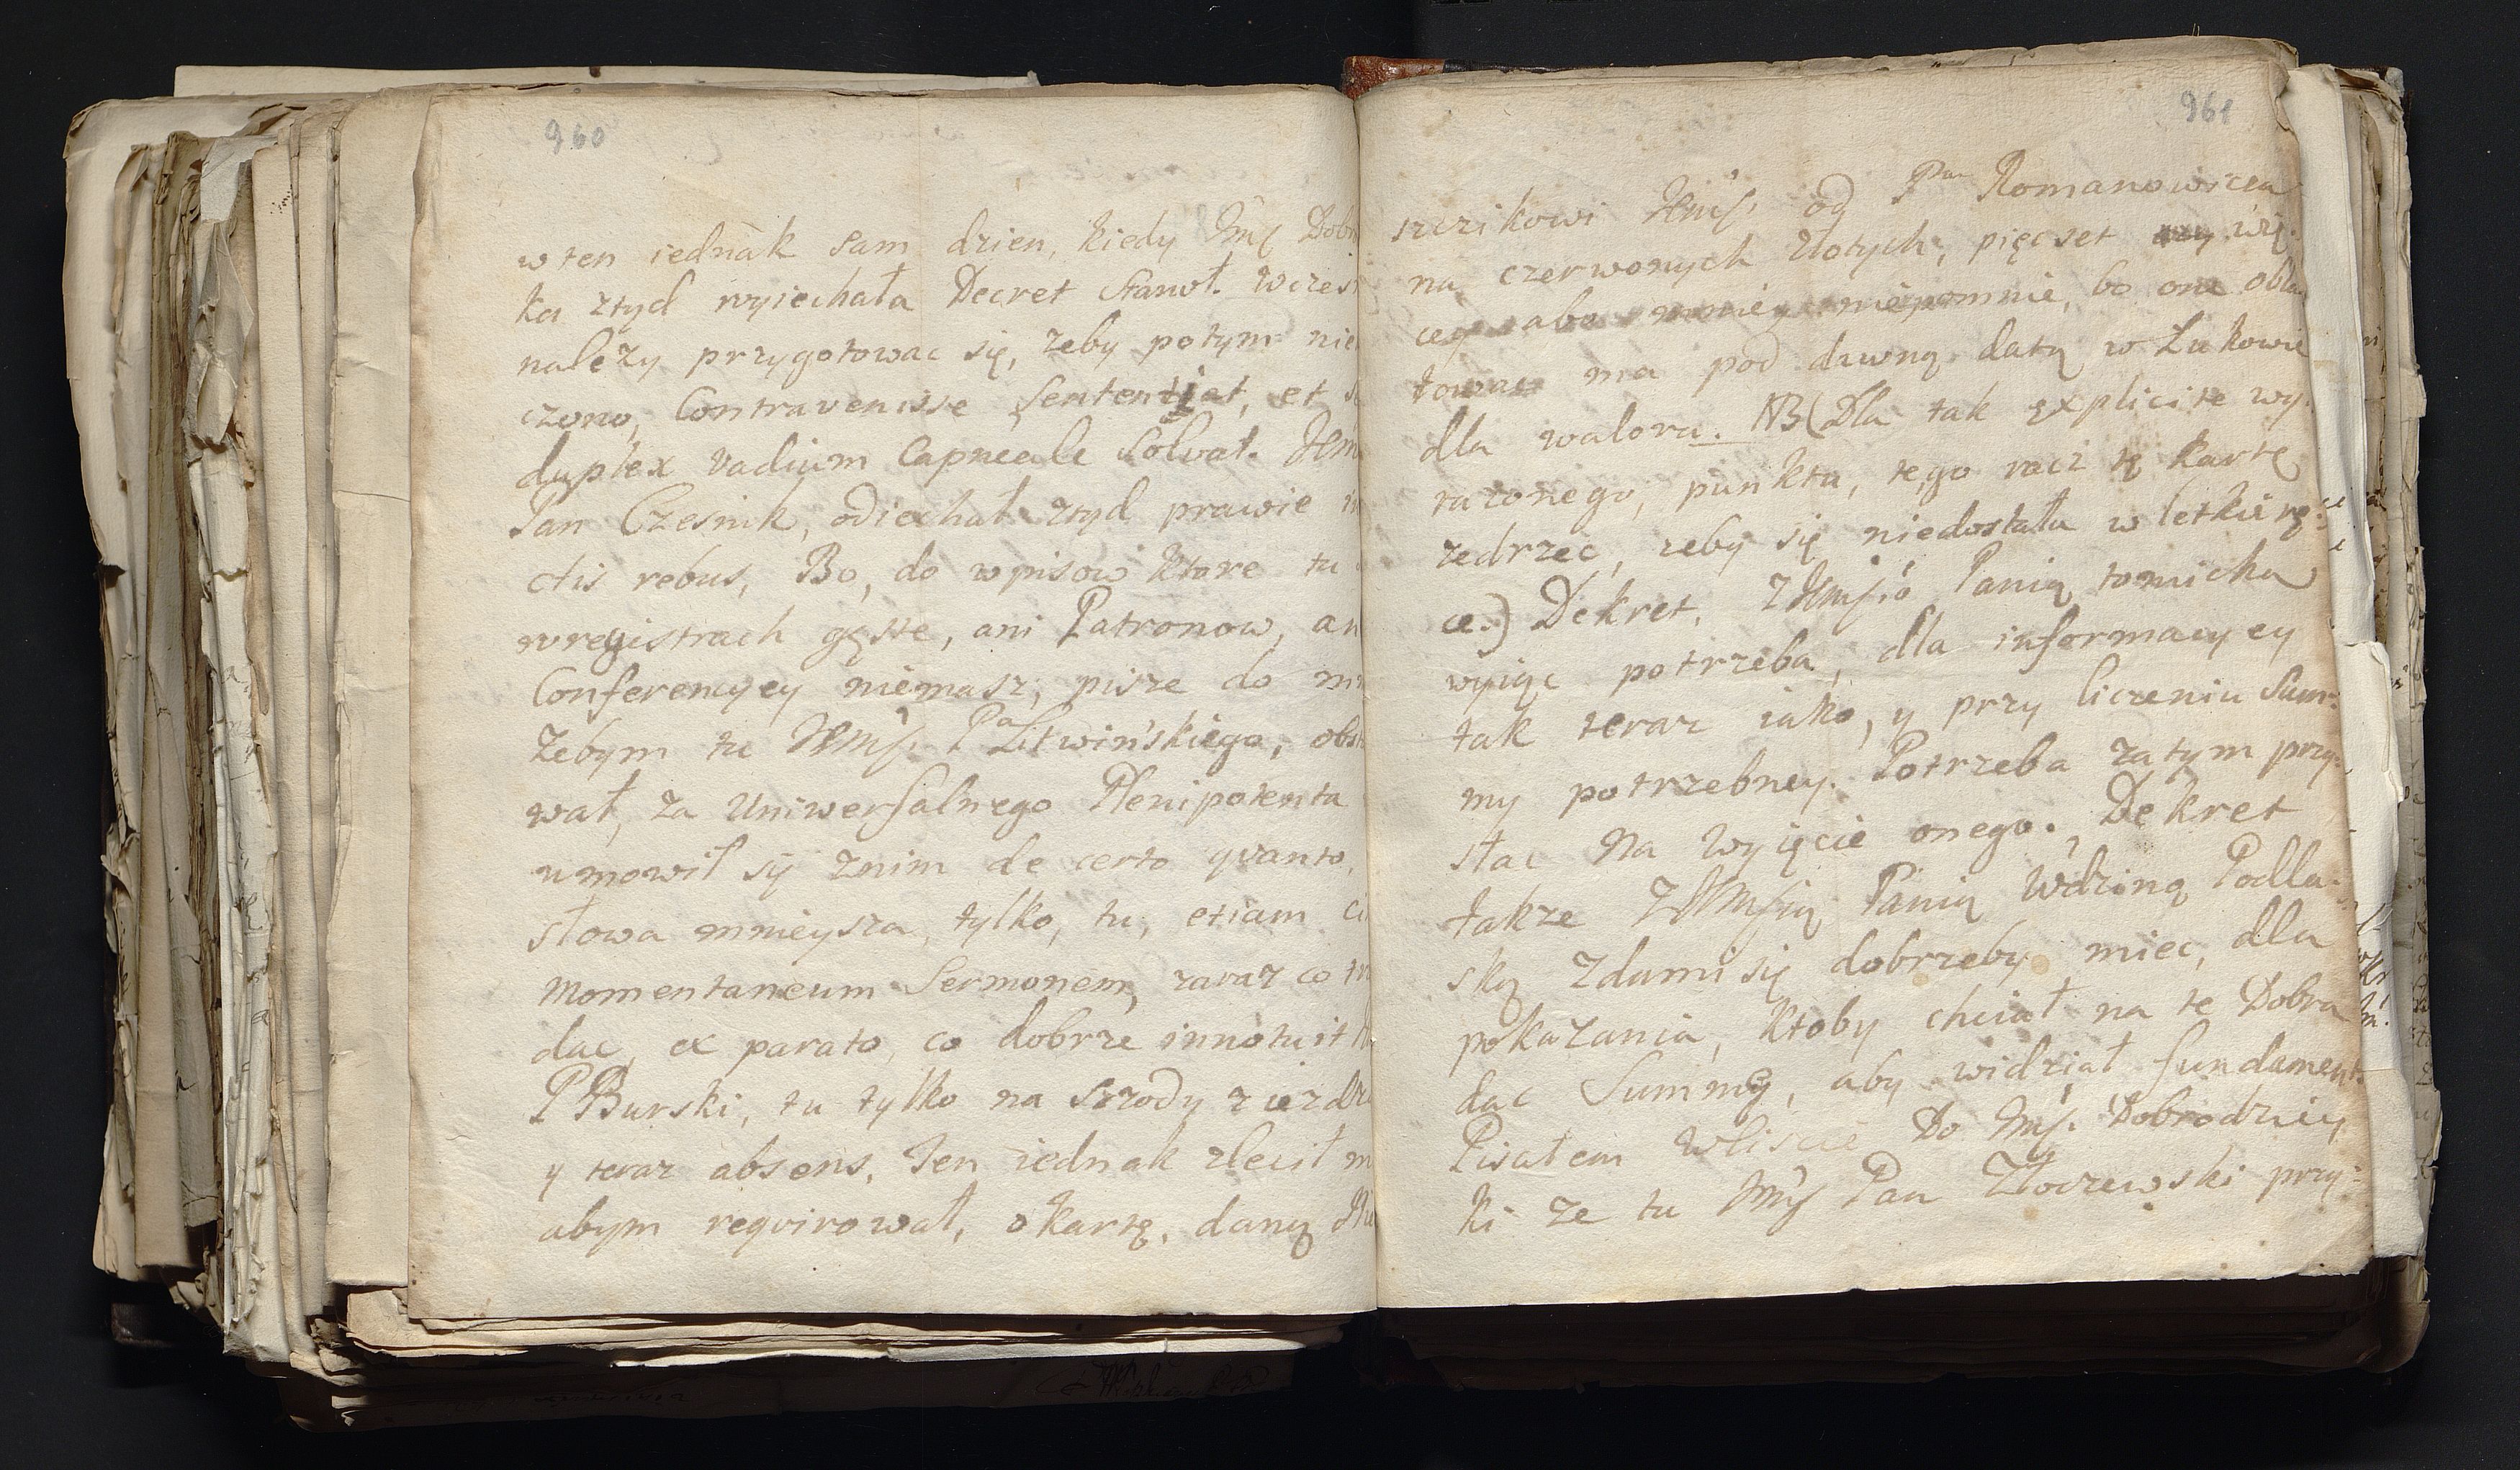 960
w ten iednak sam dzien, kiedy Jmć Dobr
ka ztyd wyiechała Decret stanoł. wczes
nalezy przygotowac się, zeby potym nie
czono, Contravenisse sententiat, et
duplex vadium Capneale solvat. Jem
Pan Czesnik, odiechał ztyd prawie in
ctis rebus, Bo, do wpisow ktore tu
w registrach gęste, ani Patronow, an
Conferencyey niemasz, pisze do mn
Zebym tu Jemć. Pa Litwińskiego, obst
wał, za Uniwersalnego Plenipotenta
umowił sy znim de certo qvanto,
słowa mnieysza, tylko, tu, etiam
momentaneum Sermonem, zaraz co
dac, ex parato, co dobrze innotuit
P Burski, tu tylko na szrody ziezdz
y teraz absens, Ten iednak zlecił m
abym reqvirował, o kartę, daną
961
szczikowi Jemć. od Pan Romanowicza
na czerwonych złotych, pięcset wię:
cey abo mniey niepomnie, bo one obla
towac ma pod dawną datą w Łukowie
dla waloru. NB (Dla tak explicite wy:
razonego, punktu, tego racz tę kartę
zedrzec, zeby się niedostała w letkie rę:
ce.) Dekret, z Jemścią Panią tomicką
wyiąc potrzeba, dla informacyey
tak teraz iako, y przy liczeniu Sum:
my potrzebney. Potrzeba zatym przy:
słac na wyięcie onego. Dekret
takze z Jmścią Panią Wdziną Podla:
ską zdami się dobrzeby miec, dla
pokazania, ktoby chciał na te Dobra
dac Summę, aby widział fundament.
Pisałem wliscie Do Jmć. Dobrodziey
ki ze tu Jmć Pan Złoczewski przy: